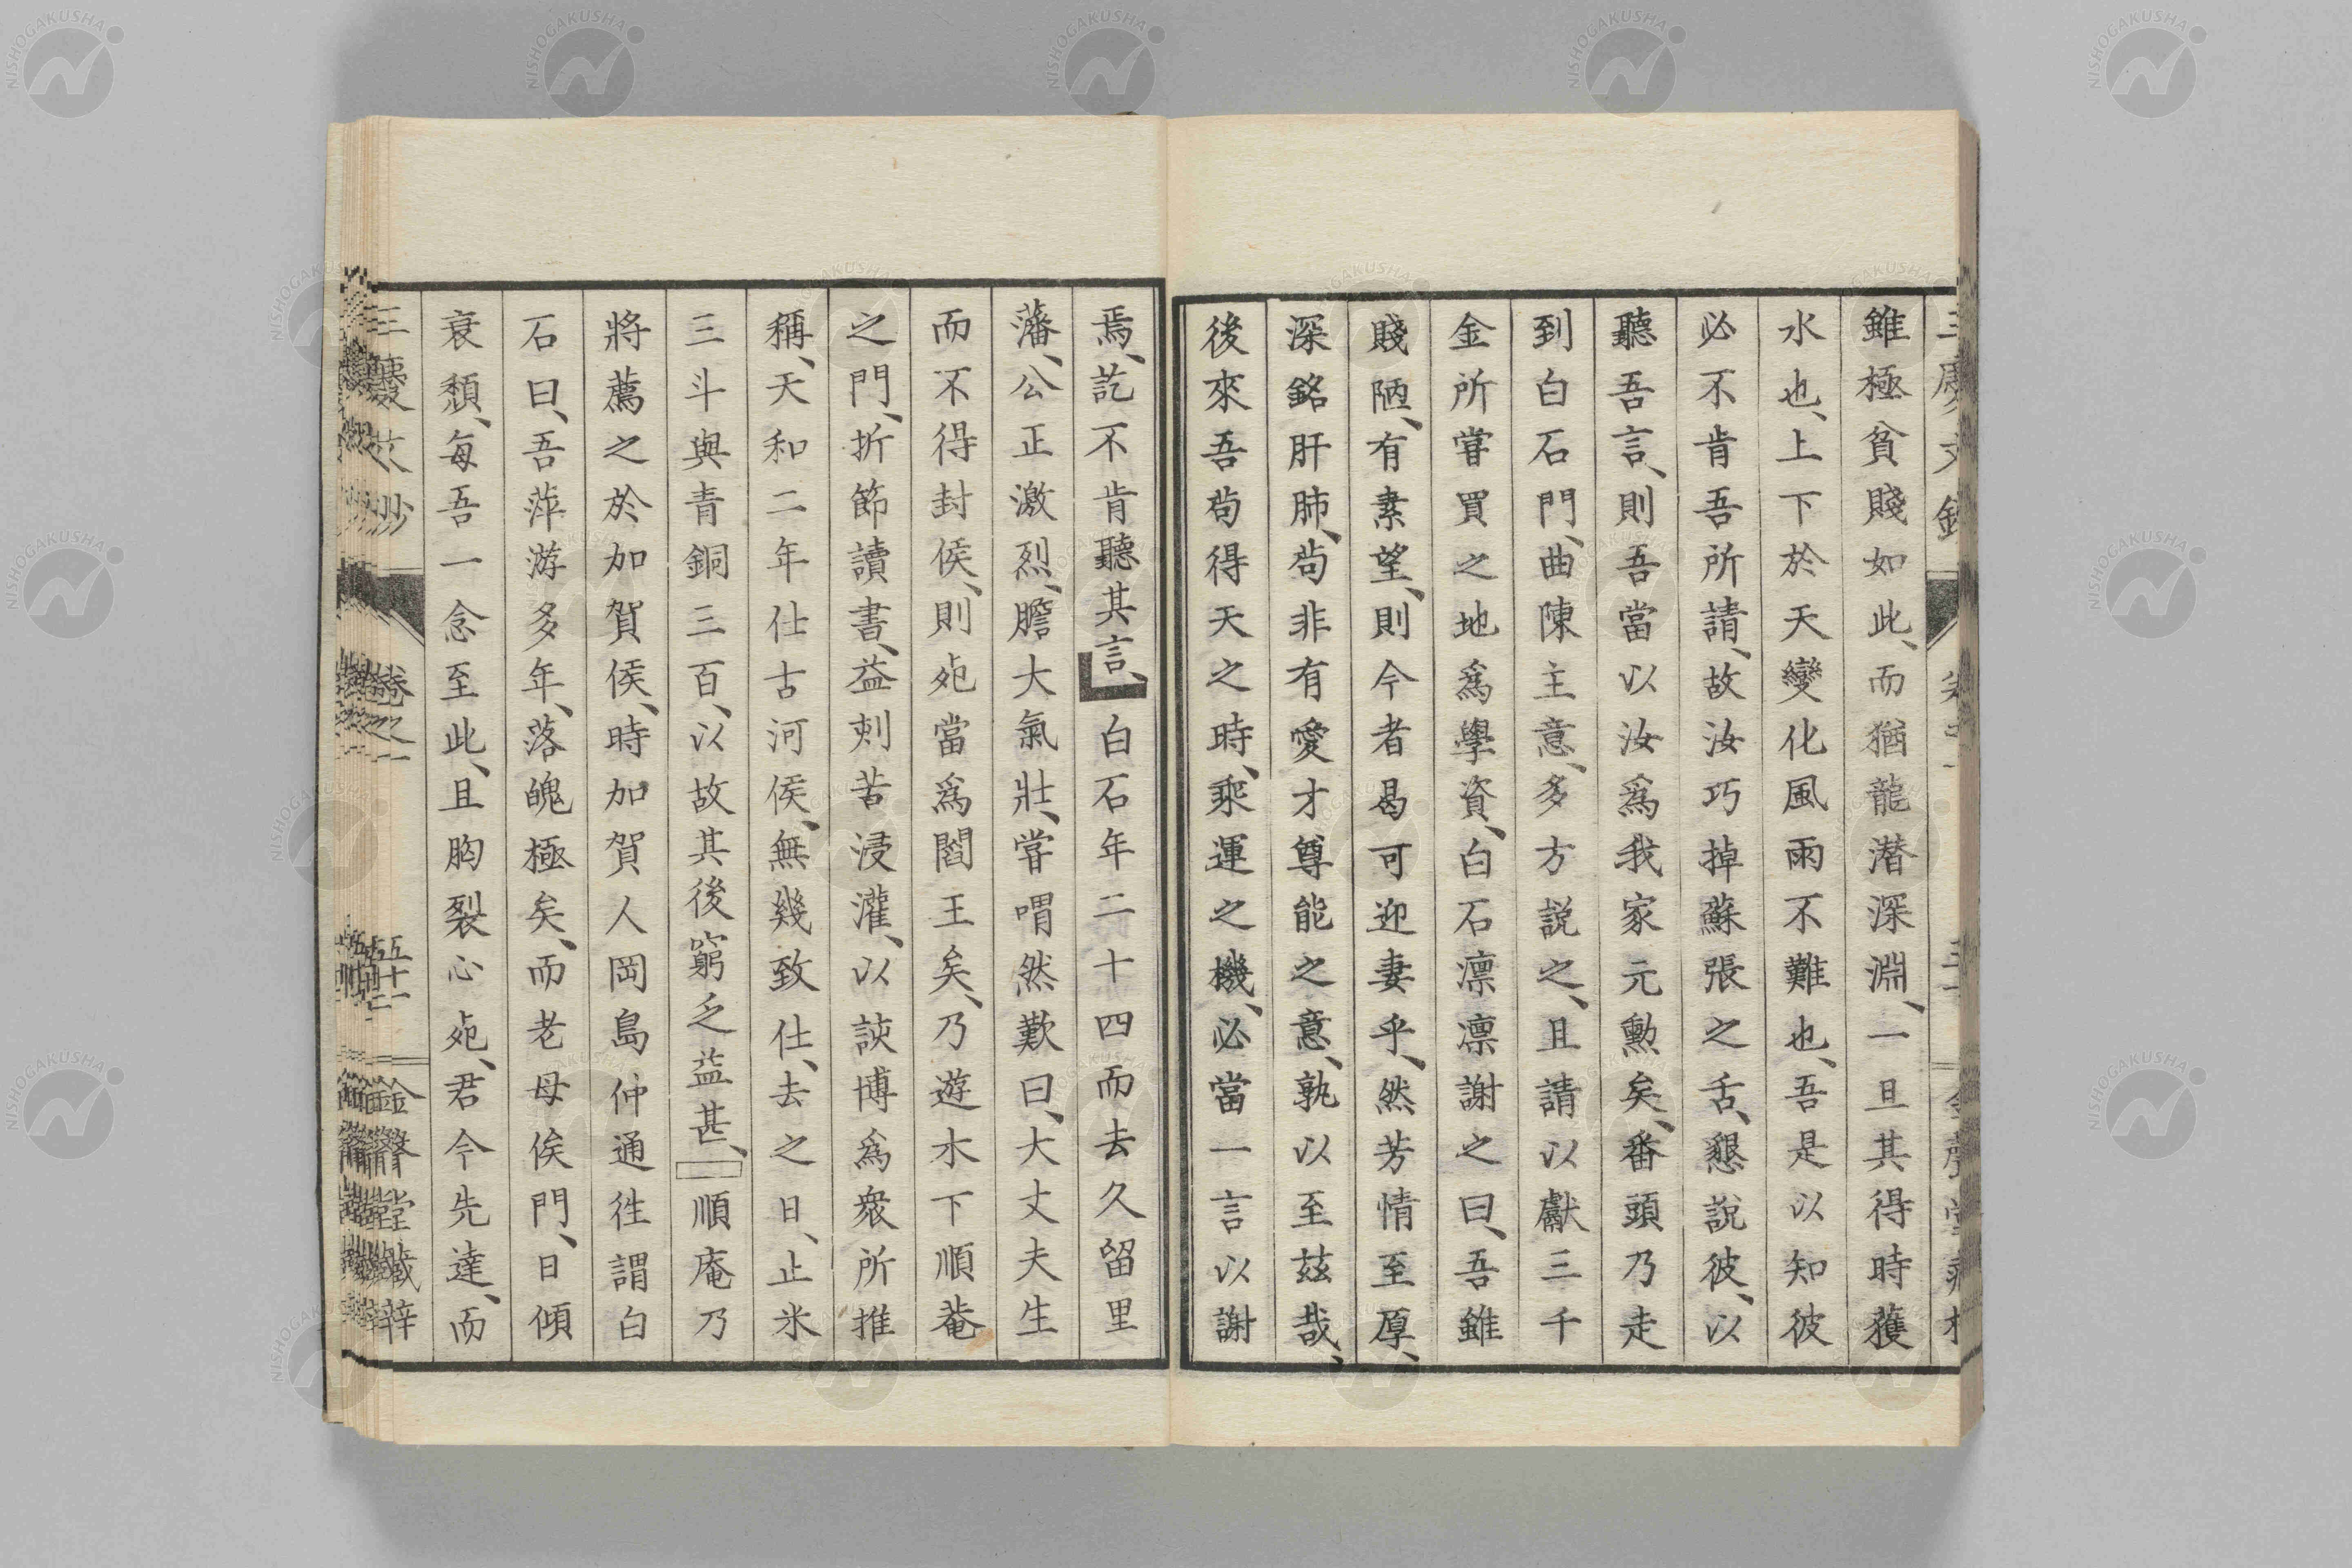 雖極貧賤如此、而猶龍潛深淵、一旦其得時獲
水也、上下於天變化風雨不難也、吾是以知彼
必不肯吾所請、故汝巧掉蘇張之舌、懇說彼、以
聽吾言、則吾當以汝爲我家元勳矣、番頭乃走
到白石門、曲陳主意、多方説之、且請以獻三千
金所甞買之地爲學資、白石凛凛謝之曰、吾雖
賤陋、有素望、則今者曷可迎妻乎、然芳情至厚、
深銘肝肺、茍非有愛才尊能之意、孰以至茲哉、
後來吾茍得天之時、乘運之機、必當一言以謝
焉、訖不肯聽其言、白石年二十四而去久留里
藩、公正激烈、膽大氣壯、甞喟然歎曰、大丈夫生
而不得封侯、則死當爲閻王矣、乃遊木下順菴
之門、折節讀書、益刺苦浸灌、以該博爲衆所推
稱、天和二年仕古河侯、無幾致仕、去之日、止米
三斗與青銅三百、以故其後窮乏益甚、順庵乃
將薦之於加賀侯、時加賀人岡島仲通徃謂白
石曰、吾萍游多年、落魄極矣、而老母俟門、日傾
衰頽、每吾一念至此、且胸裂心死、君今先達、而
三慶文鈔 卷之一 五十一 金聲堂藏梓